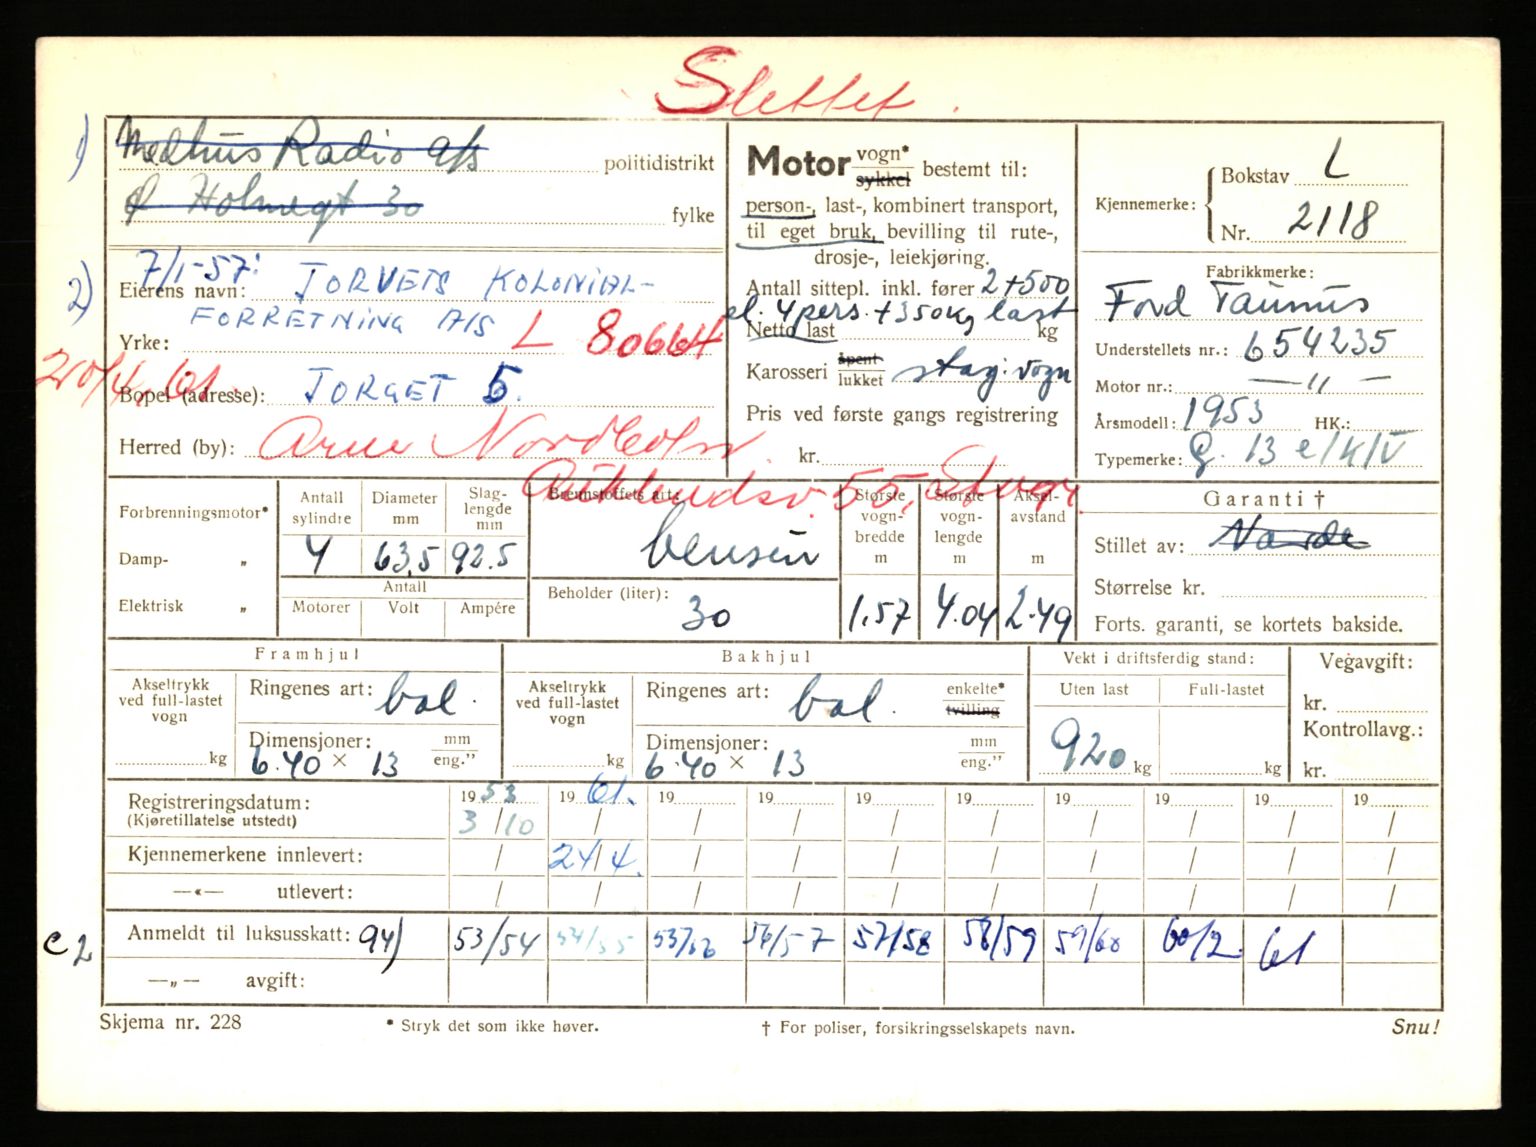 Slettet.
1) Medhus Radio a/s politidistrikt
Ø Holmegt 30 fylke
7/1-57:
2) Eierens navn: TORVETS KOLONIAL-
FORRETNING A/S L 80664
Yrke:
20/4.61.
Bopel (adresse): TORGET 5.
Herred (by): Arne Nordbolw
55, Stvgr.
Motor vogn* sykkel bestemt til:
person-, last-, kombinert transport,
til eget bruk, bevilling til rute-,
drosje-, leiekjøring.
Antall sittepl. inkl. fører 2+500
el. 4 pers. + 350 kg last
Netto last kg
Karosseri åpent lukket stasj. vogn
Pris ved første gangs registrering
kr.
Kjennemerke: Bokstav L
Nr. 2118
Fabrikkmerke:
Ford Taunus
Understellets nr.: 654235
Motor nr.: — " —
Årsmodell: 1953 HK.:
Typemerke: G. 13 e/K/V
Forbrenningsmotor*
Damp- „
Elektrisk „
Antall sylindre 4
Diameter mm 63,5
Slag-lengde mm 92.5
Antall
Motorer Volt Ampére
Bremstoffets art:
bensin
Beholder (liter):
30
Største vogn-bredde m 1.57
Største vogn-lengde m 4.04
Aksel-avstand m 2.49
Garanti †
Stillet av: Norde
Størrelse kr.
Forts. garanti, se kortets bakside.
Framhjul
Akseltrykk ved full-lastet vogn kg
Ringenes art: bal.
Dimensjoner: mm eng."
6.40 × 13
Bakhjul
Akseltrykk ved full-lastet vogn kg
Ringenes art: bal. enkelte* tvilling
Dimensjoner: mm eng."
6.40 × 13
Vekt i driftsferdig stand:
Uten last Full-lastet
920 kg kg
Vegavgift:
kr.
Kontrollavg.:
kr.
Registreringsdatum: 1953 1961. 19 19 19 19 19 19 19 19
(Kjøretillatelse utstedt) 3/10 / / / / / / / / /
Kjennemerkene innlevert: / 24/4. / / / / / / / /
—«— utlevert: / / / / / / / / / /
c2 Anmeldt til luksusskatt: 94) 53/54 54/55 55/56 56/57 57/58 58/59 59/60 60/2. 61
—„— avgift:
Skjema nr. 228 * Stryk det som ikke høver. † For poliser, forsikringsselskapets navn. Snu!